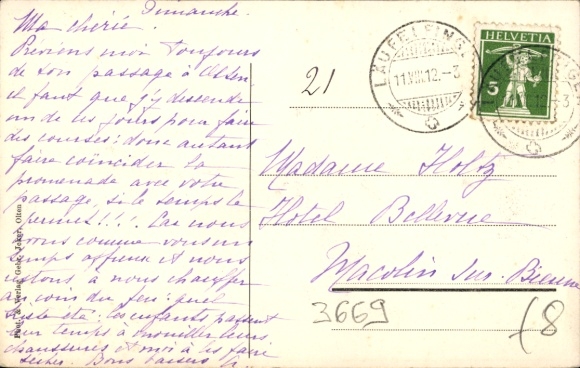 Dimanche.
Ma chérie.
Préviens moi toujours
de ton passage à Olten,
il faut que j'y descende
un de les jours pour faire
des courses: donc autant
faire coincider la
promenade avec votre
passage, si le temps le
permet!!! Car nous
avons comme vous un
temps affreux et nous
restons à nous chauffer
au coin du feu: quel
triste été: les enfants passent
leur temps à mouiller leurs
chaussures et moi à les faire
sécher. Bons baisers
Gebr. Jeker, Olten
21
LÄUFELFINGEN
11.VIII.12.-3
HELVETIA
5
Madame Holtz
Hôtel Bellevue
Macolin sur Bienne
3669